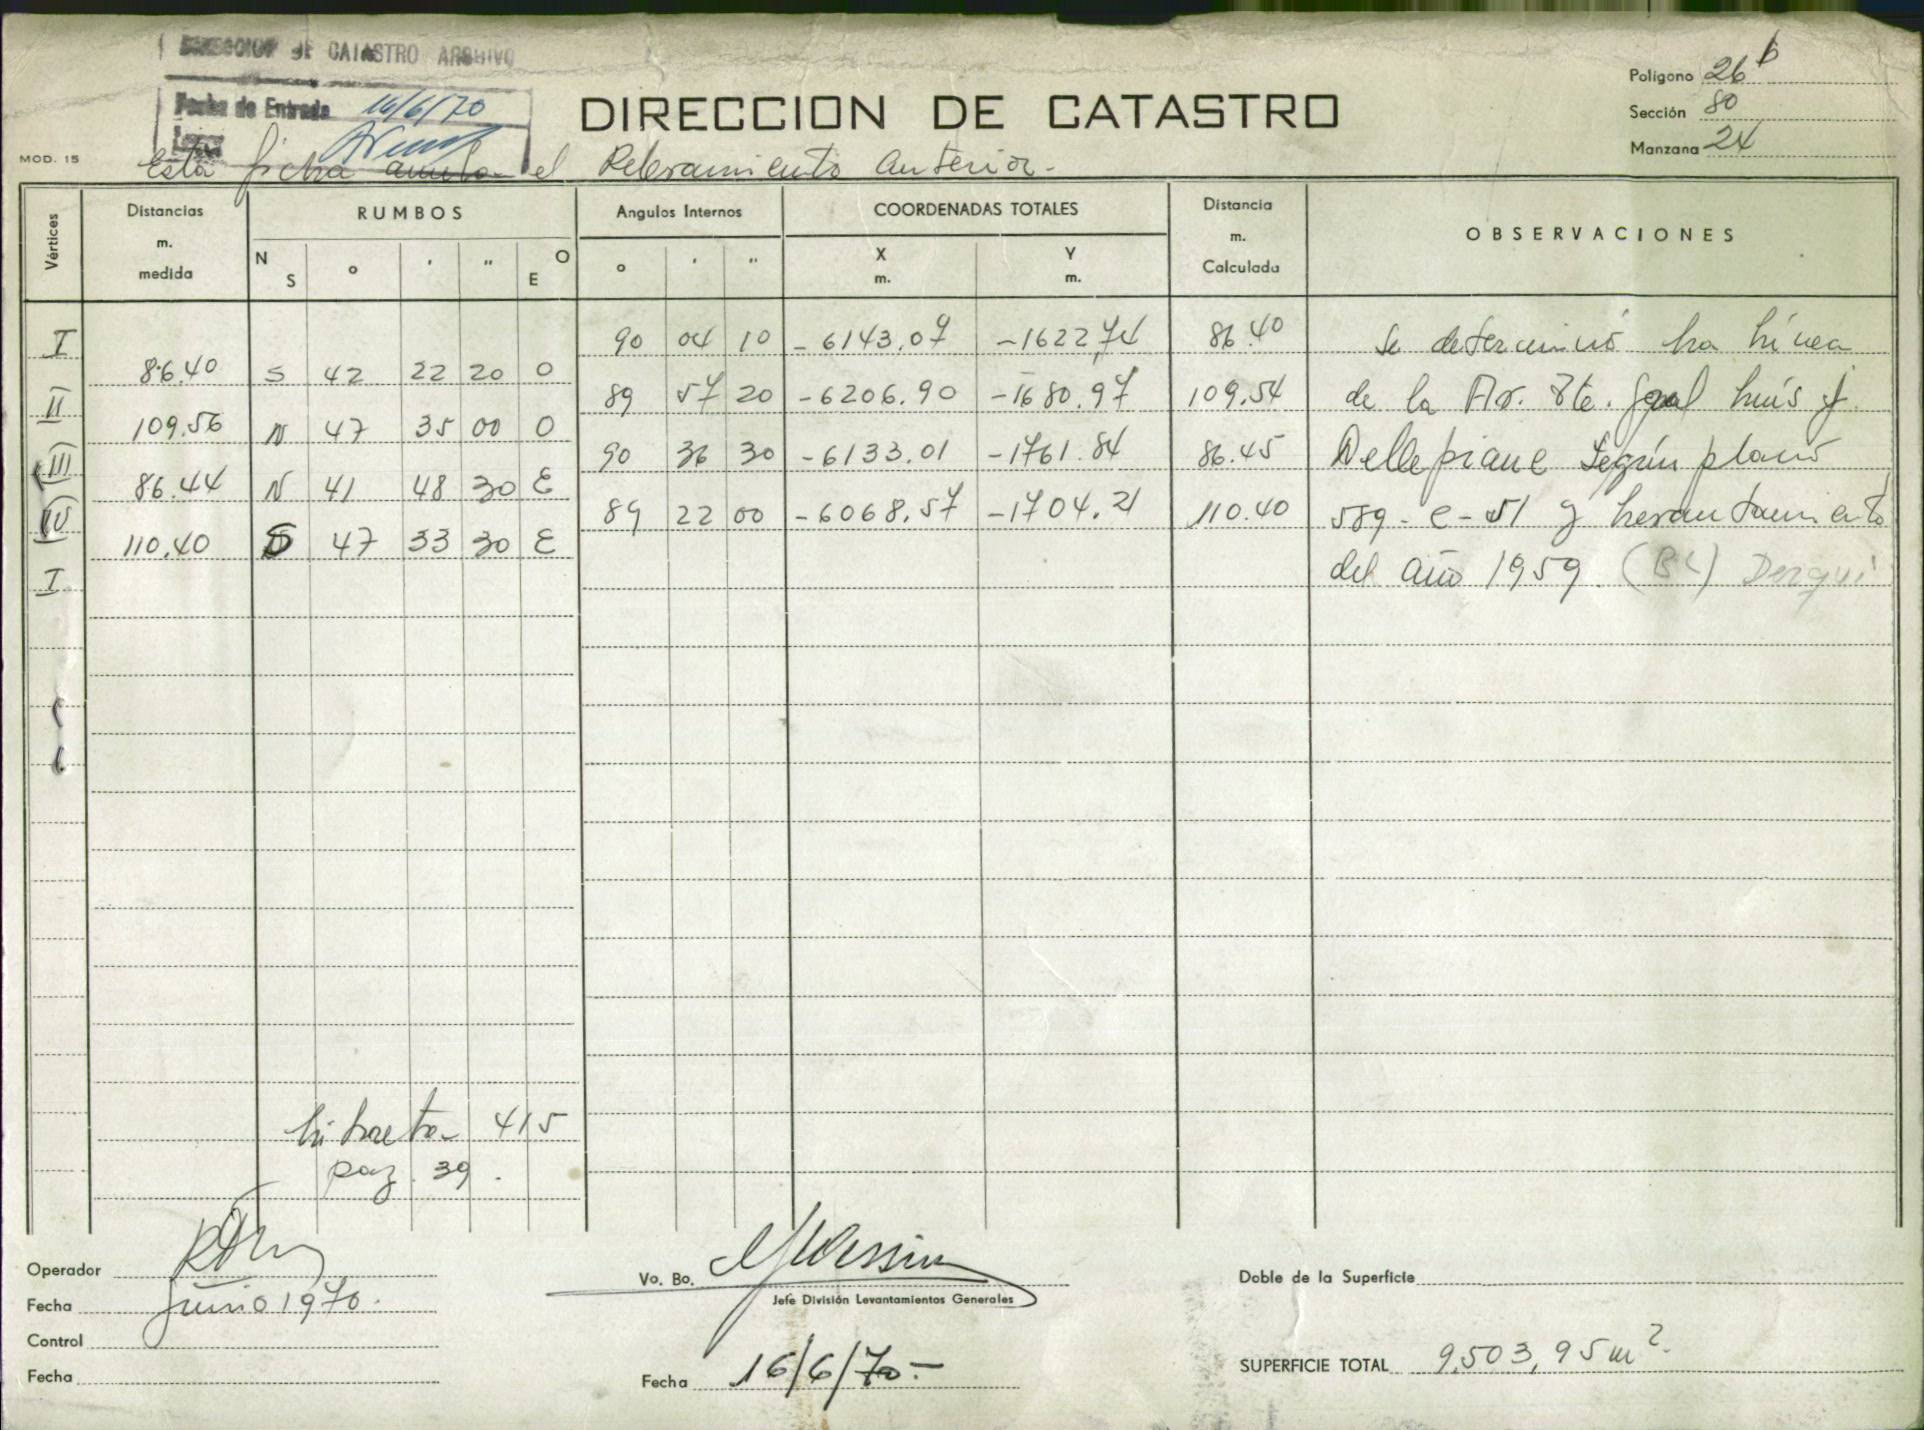 DIRECCION DE CATASTRO ARCHIVO
Fecha de Entrada 16/6/70
DIRECCION DE CATASTRO
Polígono 26 b
Sección 80
Manzana 24
MOD. 15
Esta ficha anula el Relevamiento Anterior.-
Vértices Distancias m. medida RUMBOS Angulos Internos COORDENADAS TOTALES Distancia m. Calculada OBSERVACIONES
N S ° ' " O E ° ' " X m. Y m.
I 90 04 10 -6143.07 -1622.74 86.40 Se determinó La Línea
86.40 S 42 22 20 O
II 89 57 20 -6206.90 -1680.97 109.54 de la Av. Tte. Gral Luís J.
109.56 N 47 35 00 O
III 90 36 30 -6133.01 -1761.84 86.45 Dellepiane Según plano
86.44 N 41 48 30 E
IV 89 22 00 -6068.57 -1704.21 110.40 589-C-51 y Levantamiento
110.40 S 47 33 30 E
I del año 1959. (BC) Derqui
Libreta 415
pag. 39.
Operador
Fecha Junio 1970.
Control
Fecha
Vo. Bo.
Jefe División Levantamientos Generales
Fecha 16/6/70.-
Doble de la Superficie
SUPERFICIE TOTAL 9.503,95 m2.